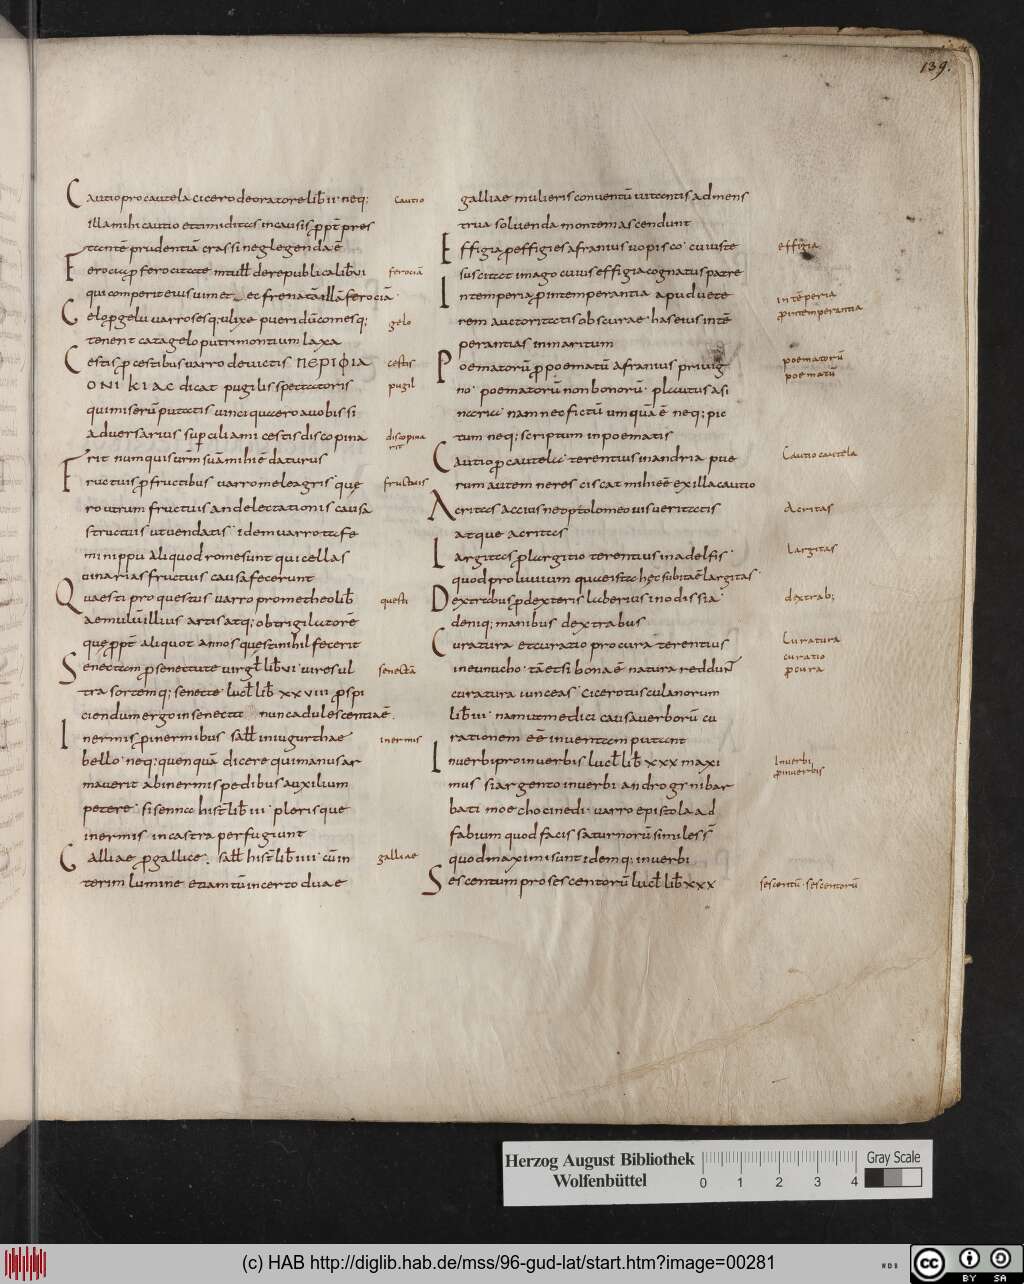 139.
Cautio pro cautela cicero de oratore lib̄ ii neq;
illa mihi cautio et timiditas in causis ꝓpt̄ pres
tantē prudentiā crassi neglegenda ē
Ferocia ꝓ ferocitate m tull̄ de republica lib̄ vi
qui comperit eius vim et ec frenatā illā ferociā
Celo ꝓ gelu varro sesq; ulixe pueri dū comesq;
tenent catagelo putrimonium laxa
Cestis ꝓ cestibus varro devictis ΠΕΡΙΦΙΛ
ΟΝΙΚΙΑC dicat pugilis spectatoris
qui miserū putatis vinci quaero a vobis si
adversarius superciliami cestis discopina
rit num quis urm̄ suā mihi ē daturus
Fructuis ꝓ fructibus varro meleagris que
ro utrum fructuis an delectationis causa
structuis ut vendatis idem varro tafe
minippu aliquod rome sunt qui cellas
vinarias fructuis causa fecerunt
Quaesti pro questus varro prometheo lib̄
aemulū illius artis atq; obtrigilatorē
que ꝓpt̄ aliquot annos questi nihil fecerit
Senectam ꝓ senectute virgl̄ lib̄ vi vires ul
tra sortemq; senecte lucl̄ lib̄ xxviii ꝓspi
ciendum ergo in senecta nunc adulescentia ē
Inermis ꝓ inermibus sall̄ in iugurthae
bello neq; quenquā dicere qui manus ar
maverit ab inermis pedibus auxilium
petere sisenna hist̄ lib̄ iii plerisque
inermis in castra perfugiunt
Galliae ꝓ gallice sall̄ hist̄ lib̄ iiii cū in
terim lumine etiam tū incerto duae
Cautio
ferociā
gelo
cestis
pugil
discopina
rit
fructuis
questi
senectā
inermis
galliae
galliae mulieris conventū vitantis ad mens
trua solvenda montem ascendunt
Effigia ꝓ effigies afranius vopisco cuius te
suscitat imago cuius effigia cognatus patre
Intemperia ꝓ intemperantia apud vete
rem auctoritatis obscurae has eius intē
perantias in maritum
Poematorū ꝓ poematū afranius privig
no poematorū non bonorū plautus asi
naria nam nec fictū umquā ē neq; pic
tum neq; scriptum in poematis
Cautio ꝓ cautela terentius in andria pue
rum autem ne resciscat mihi eē ex illa cautio
Acritas accius neoptolomeo vis veritatis
atque acritas
Largitas ꝓ largitio terentius in adelfis
quod proluvium quae ista hęc subita ē largitas
Dextrabus ꝓ dexteris laberius in odissia
deniq; manibus dextrabus
Curatura et curatio pro cura terentius
in eunucho tā etsi bona ē natura reddunt
curatura iunceas cicero tusculanorum
lib̄ iii nam ut medici causa verborū cu
rationem eē inventam putant
Inverbi pro inverbis lucl̄ lib̄ xxx maxi
mus si argento inverbi androgini bar
bati moechocinedi varro epistola ad
fabium quod facis saturnorū similes s̄
quod maximi sunt idemq; inverbi
Sescentum pro sescentorū lucl̄ lib̄ xxx
effigia
intēperia
ꝓ intemperantia
poematorū
poematū
Cautio cautela
Acritas
Largitas
dextrab;
Curatura
curatio
ꝓ cura
Inverbi
ꝓ inverbis
sescentū sescentorū
Herzog August Bibliothek
Wolfenbüttel
0 1 2 3 4
Gray Scale
(c) HAB http://diglib.hab.de/mss/96-gud-lat/start.htm?image=00281
WDB
cc BY SA